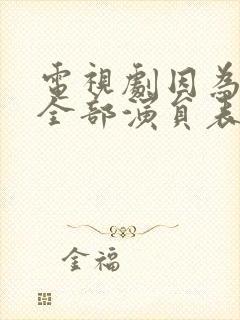 電視劇因為
全部演員表
金福